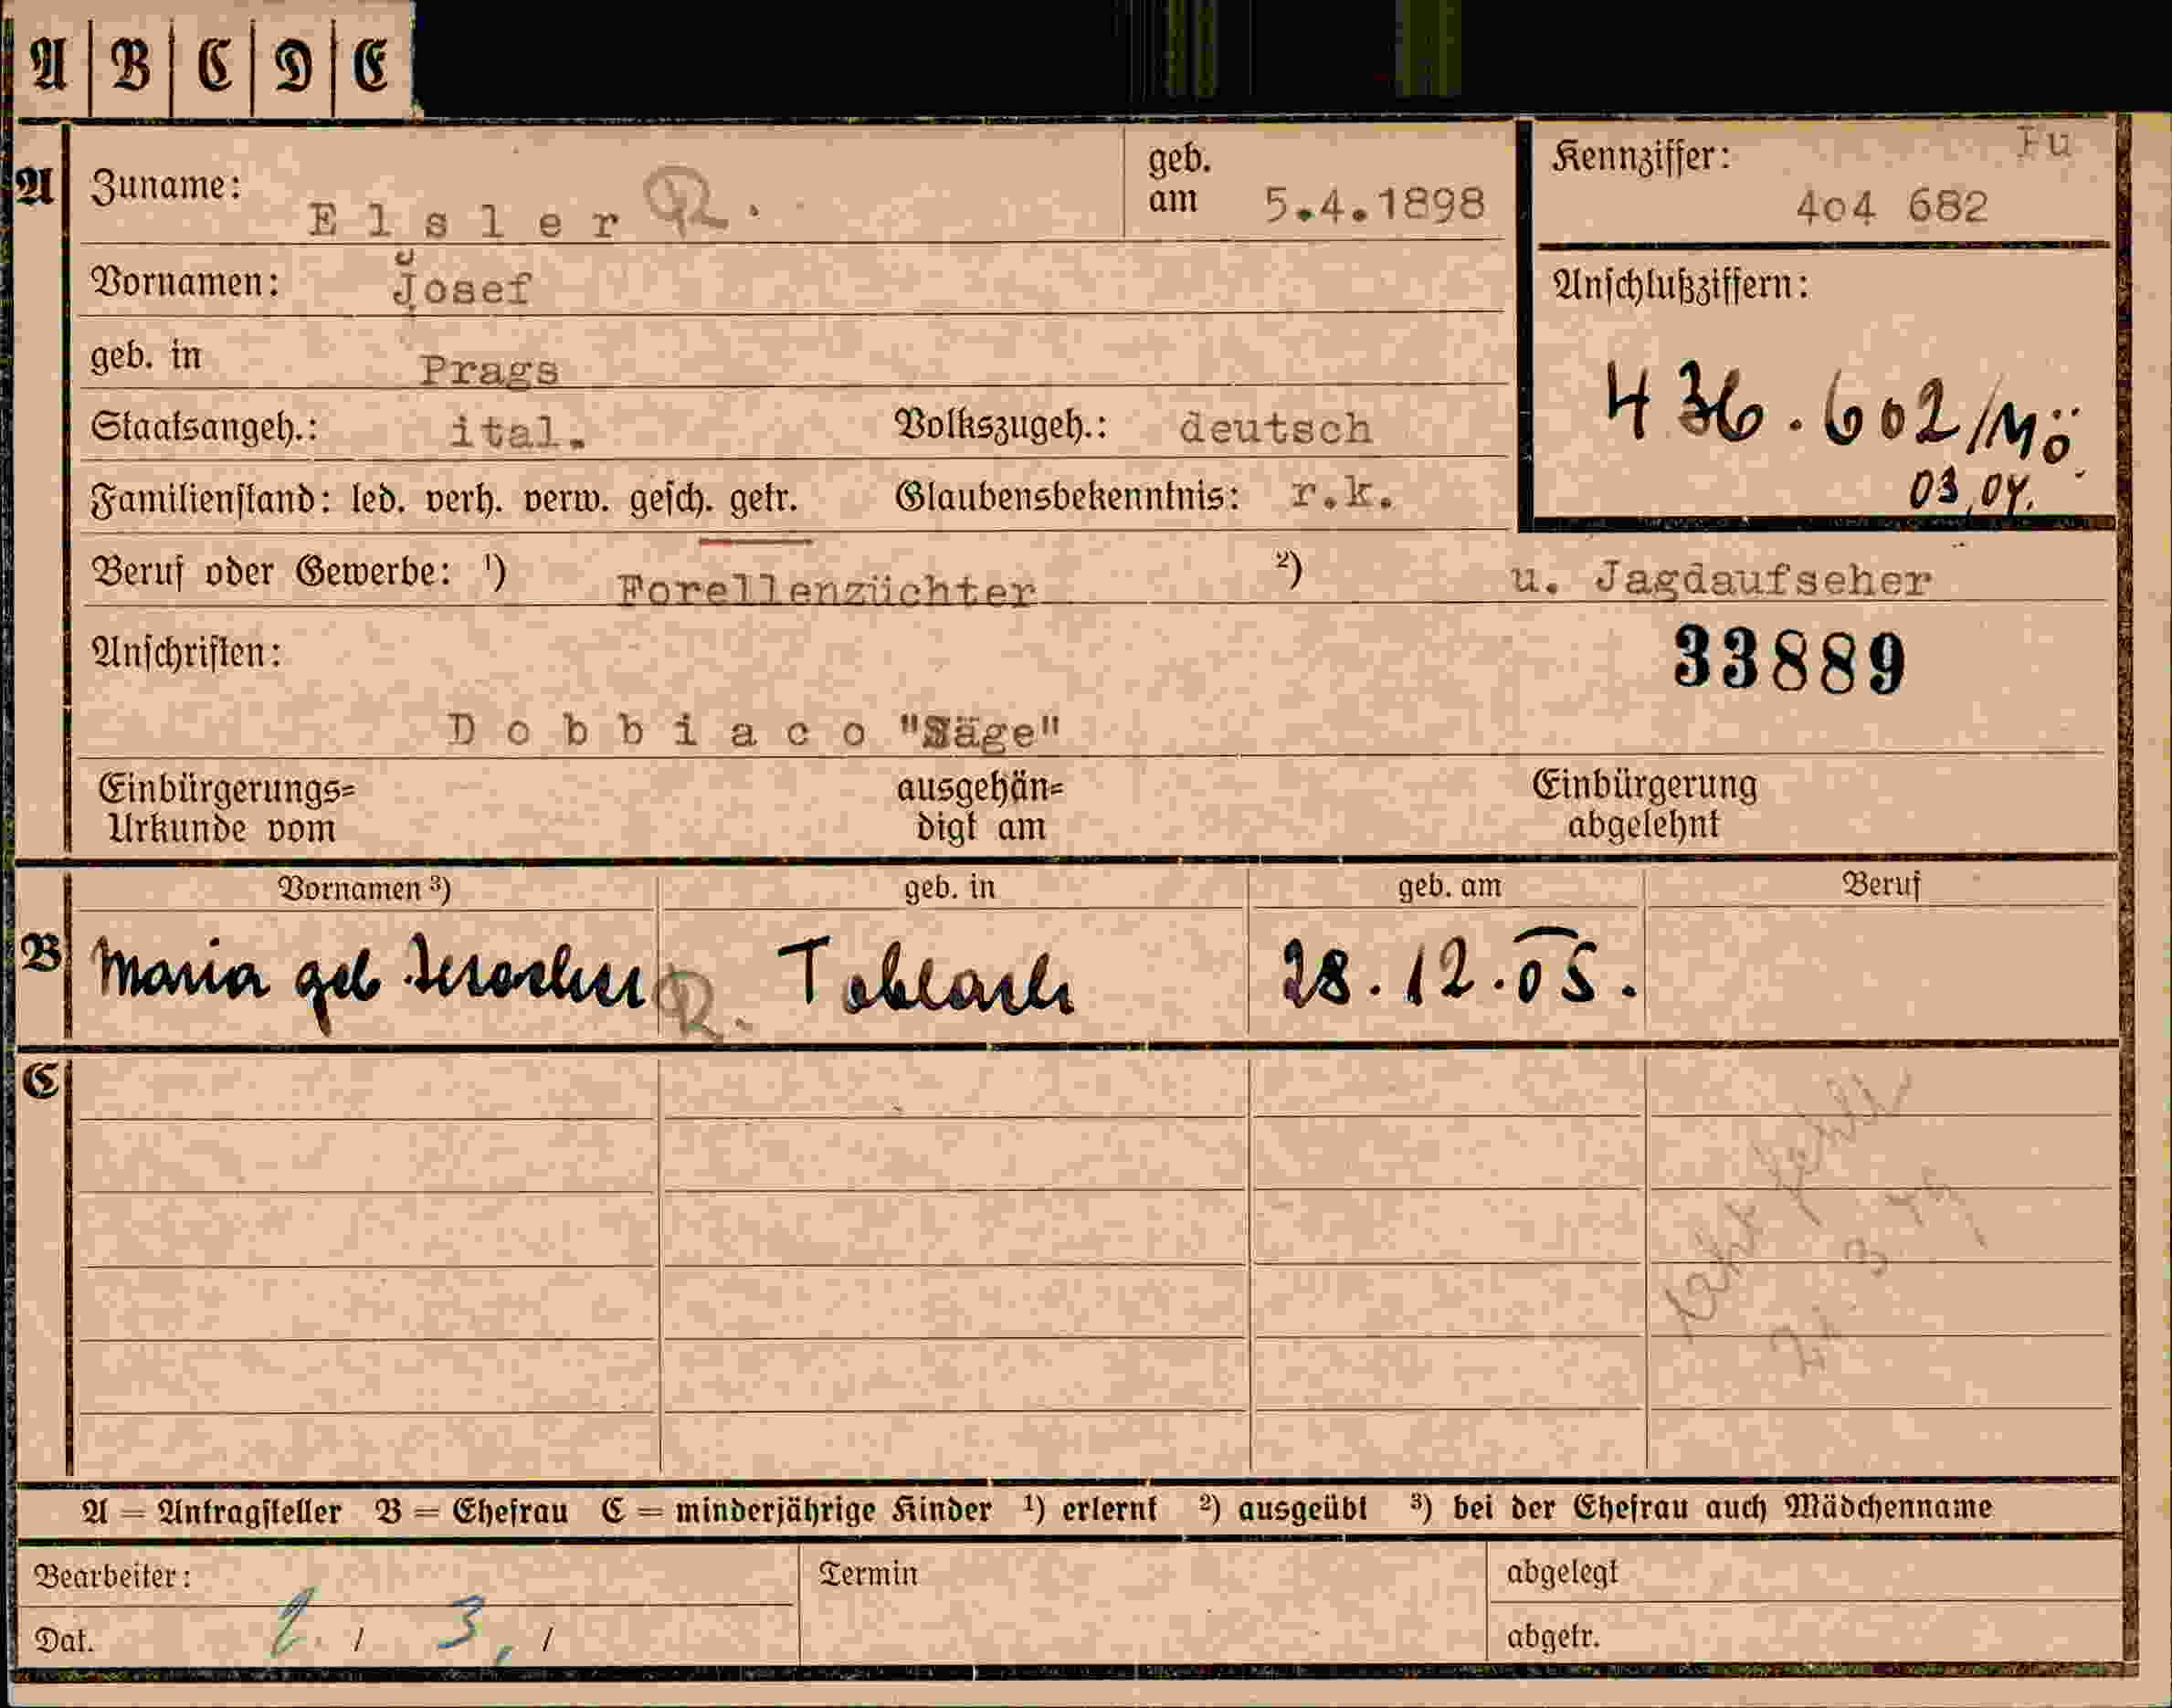 A B C D E
A Zuname: Elsler R. geb. am 5.4.1898 Kennziffer: Fu
404 682
Vornamen: Josef Anschlußziffern:
geb. in Prags
436.602/Mö
03,04.
Staatsangeh.: ital. Volkszugeh.: deutsch
Familienstand: led. verh. verw. gesch. getr. Glaubensbekenntnis: r.k.
Beruf oder Gewerbe: ¹) Forellenzüchter ²) u. Jagdaufseher
Anschriften: 33889
Dobbiaco "Säge"
Einbürgerungs= ausgehän= Einbürgerung
Urkunde vom digt am abgelehnt
Vornamen ³) geb. in geb. am Beruf
B Maria geb R. Toblach 28.12.05.
C
A = Antragsteller B = Ehefrau C = minderjährige Kinder ¹) erlernt ²) ausgeübt ³) bei der Ehefrau auch Mädchenname
Bearbeiter: Termin abgelegt
Dat. 2. / 3, / abgetr.